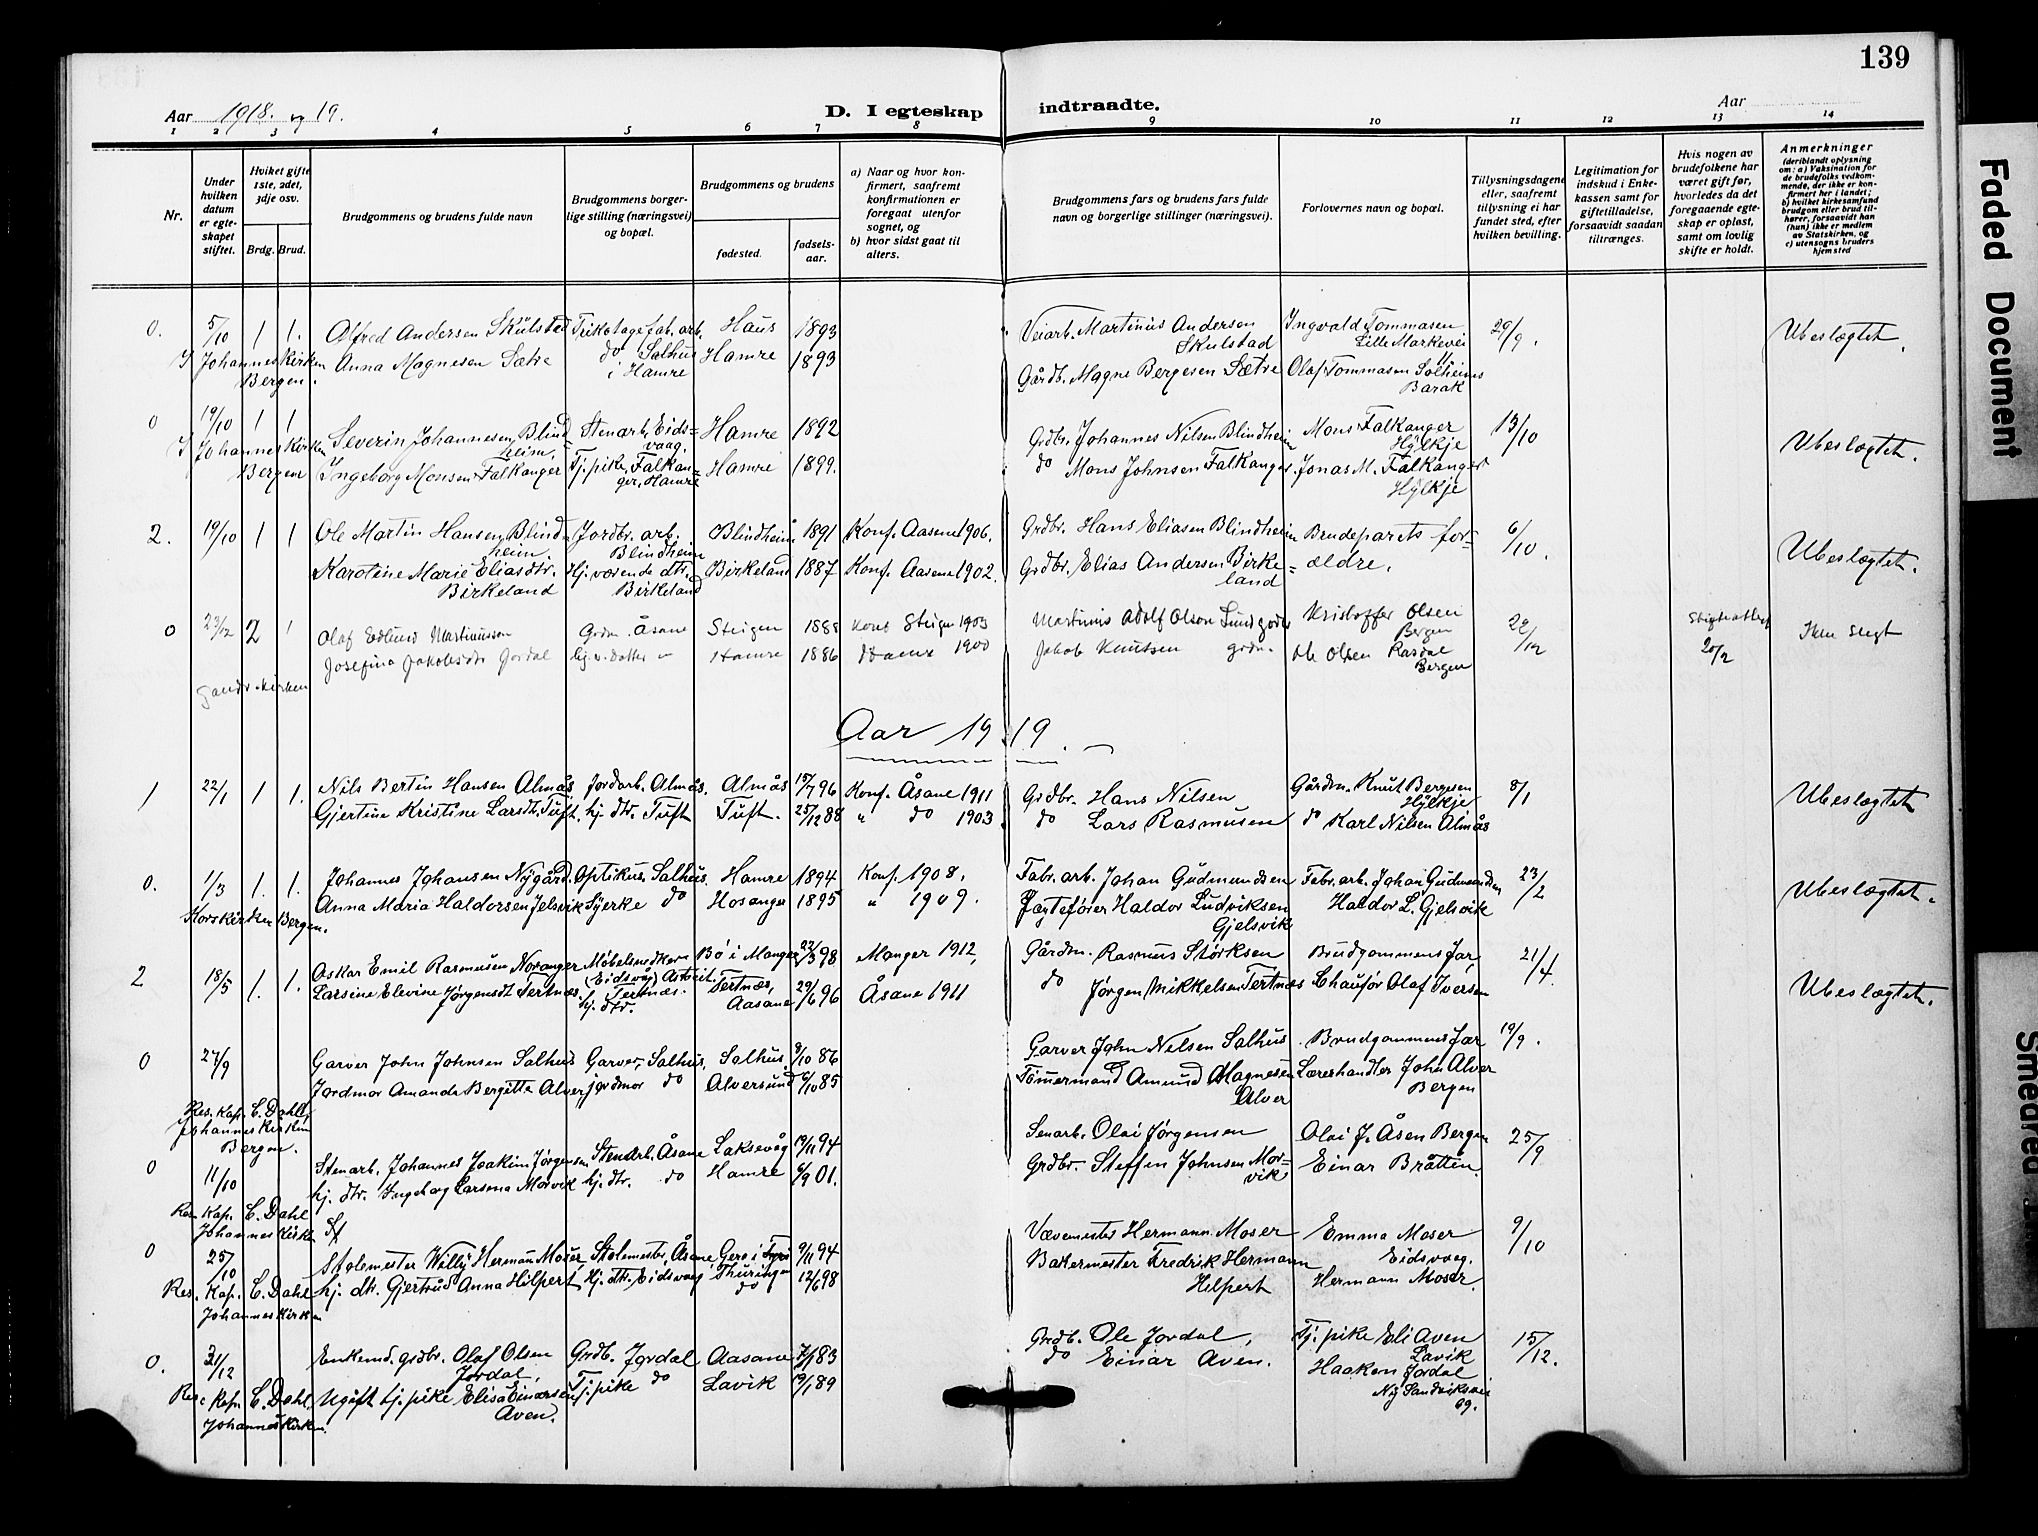 139
Aar 1918. og 19.
D. I egteskap indtraadte.
Aar
1 2 3 4 5 6 7 8 9 10 11 12 13 14
Nr.
Under hvilken datum er egteskapet stiftet.
Hvilket gifte 1ste, 2det, 3dje osv.
Brdg. Brud.
Brudgommens og brudens fulde navn
Brudgommens borgerlige stilling (næringsvei) og bopæl.
Brudgommens og brudens
fødested.
fødselsaar.
a) Naar og hvor konfirmert, saafremt konfirmationen er foregaat utenfor sognet, og
b) hvor sidst gaat til alters.
Brudgommens fars og brudens fars fulde navn og borgerlige stillinger (næringsvei).
Forlovernes navn og bopæl.
Tillysningsdagene eller, saafremt tillysning ei har fundet sted, efter hvilken bevilling.
Legitimation for indskud i Enkekassen samt for giftetilladelse, forsaavidt saadan tiltrænges.
Hvis nogen av brudefolkene har været gift før, hvorledes da det foregaaende egteskap er opløst, samt om lovlig skifte er holdt.
Anmerkninger
(deriblandt oplysning om: a) Vaksination for de brudefolks vedkommende, der ikke er konfirmert her i landet; b) hvilket kirkesamfund brudgom eller brud tilhører, forsaavidt han (hun) ikke er medlem av Statskirken, og c) utensogns bruders hjemsted
0. 5/10 1 1. Alfred Andersen Skulstad Trikotagefab. arb. Haus 1893 Veiarb. Martinus Andersen Skulstad Ingvald Tommasen Lille Markevei 11 29/9. Ubeslægtet.
I Johanneskirken Bergen. Anna Magnesen Sætre do Salhus i Hamre Hamre 1893 Gårdb. Magne Bergesen Sætre Olaf Tommasen Solheims Barak
0 19/10 1 1 Severin Johannesen Blindheim. Stenarb. Eidsvaag. Hamre 1892 Grdbr. Johannes Nilsen Blindheim Mons Falkanger Hylkje 13/10 Ubeslægtet.
I Johanneskirken Bergen Ingeborg Monsen Falkanger Tj. pike, Falkanger, Hamre Hamre 1899. do Mons Johnsen Falkanger. Jonas M. Falkanger Hylkje
2. 19/10 1 1 Ole Martin Hansen Blindheim. Jordbr. arb. Blindheim Blindheim 1891 Konf. Aasene 1906. Grdbr. Hans Eliasen Blindheim Brudeparets forældre. 6/10. Ubeslægtet.
Karoline Marie Eliasdtr. Birkeland Hj. værende dtr. Birkeland Birkeland 1887 Konf. Aasene 1902. Grdbr. Elias Andersen Birkeland
0 23/12 2 1 Olaf Edlund Martinussen Grdm. Åsane Steigen 1888 Konf Steigen 1903 Martinus Adolf Olson Kristoffer Olsen Bergen 22/12 20/2 Ikke slegt
Josefina Jakobsdtr Jordal hj. v. datter " Hamre 1886 Hamre 1900 Jakob Knutsen grdm. Ole Olsen Rasdal Bergen
Aar 1919.
1 22/1 1 1. Nils Bertin Hansen Almås Jordarb. Almås. Almås 15/7 96 Konf. Åsane 1911 Grdbr. Hans Nilsen Gårdm. Knut Bergesen Hylkje 8/1 Ubeslægtet
Gjertine Kristine Larsdt. Tuft. hj. dtr. Tuft Tuft. 25/12 88 " do 1903 do Lars Rasmusen do Karl Nilsen Almås
0. 1/3 1. 1. Johannes Johansen Nygård. Optikus, Salhus. Hamre 1894 Konf. 1908. Fabr. arb. Johan Gudmundsen Fabr. arb. Johan Gudmundsen 23/2 Ubeslægtet.
Korskirken Bergen. Anna Maria Haldorsen Jelsvik Syerke do Hosanger 1895 " 1909. Jægtefører Haldor Ludviksen Gjelsvik Haldor L. Gjelsvik
2 18/5 1. 1. Askar Emil Rasmusen Noranger Møbelsnedker (Eidsvåg) Bø i Manger 22/3 98 Manger 1912, Gårdm. Rasmus Størksen Brudgommens far, 21/4. Ubeslægtet.
Larsine Elevine Jørgensdt Tertnæs. Tertnæs. hj. dtr. Tertnæs, Aasane 29/6 96 Åsane 1911 do Jørgen Mikkelsen Tertnæs Chauffør Olaf Iversen
0 27/9 Garver John Johnsen Salhus Garver, Salhus, Salhus 8/10 86 Garver John Nilsen Salhus Brudgommens far 19/9.
Jordmor Amanda Bergitte Alver, jordmor do Alversund 6/10 85 Tømmermand Amund Magnesen Alver Læreshandler John Alver Bergen
Res. Kap. C. Dahl, Johanneskirken Bergen.
0 11/10 Stenarb. Johannes Joakim Jørgensen Stenarb. Åsane Laksevåg 19/11 94 Senarb. Olai Jørgensen Olai J. Åsen Bergen 25/9
hj. dtr. Ingeborg Larsena Morvik hj. dtr. do Hamre 6/9 01. Grdbr. Steffen Johnsen Morvik Einar Bråtten.
Res. Kap. C. Dahl Johanneskirke
0 25/10 Stolemester Willy Herman Moser, Stolemester, Åsane, Gera i 9/11 94 Vævemester Hermann Moser Emma Moser Eidsvaag. 9/10
hj. dtr. Gjertrud Anna Hilpert hj. dtr. Eidsvaag Thüringen do 12/6 98 Bakermester Fredrik Hermann Hilpert Hermann Moser.
Res. Kap. C. Dahl Johanneskirken
0. 21/12 Enkemd. grdbr. Olaf Olsen Jordal, Grdb. Jordal Aasane 7/1 83 Grdb. Ole Jordal, Tj. pike Eli Aven Lavik 15/12.
Ugift tj. pike Elisa Einarsen Aven. Tj. pike do Lavik 19/1 89 do Einar Aven. Haakon Jordal Ny Sandviksvei 69.
Res. Kap. C. Dahl, Johanneskirken.
Faded Document
Smeared